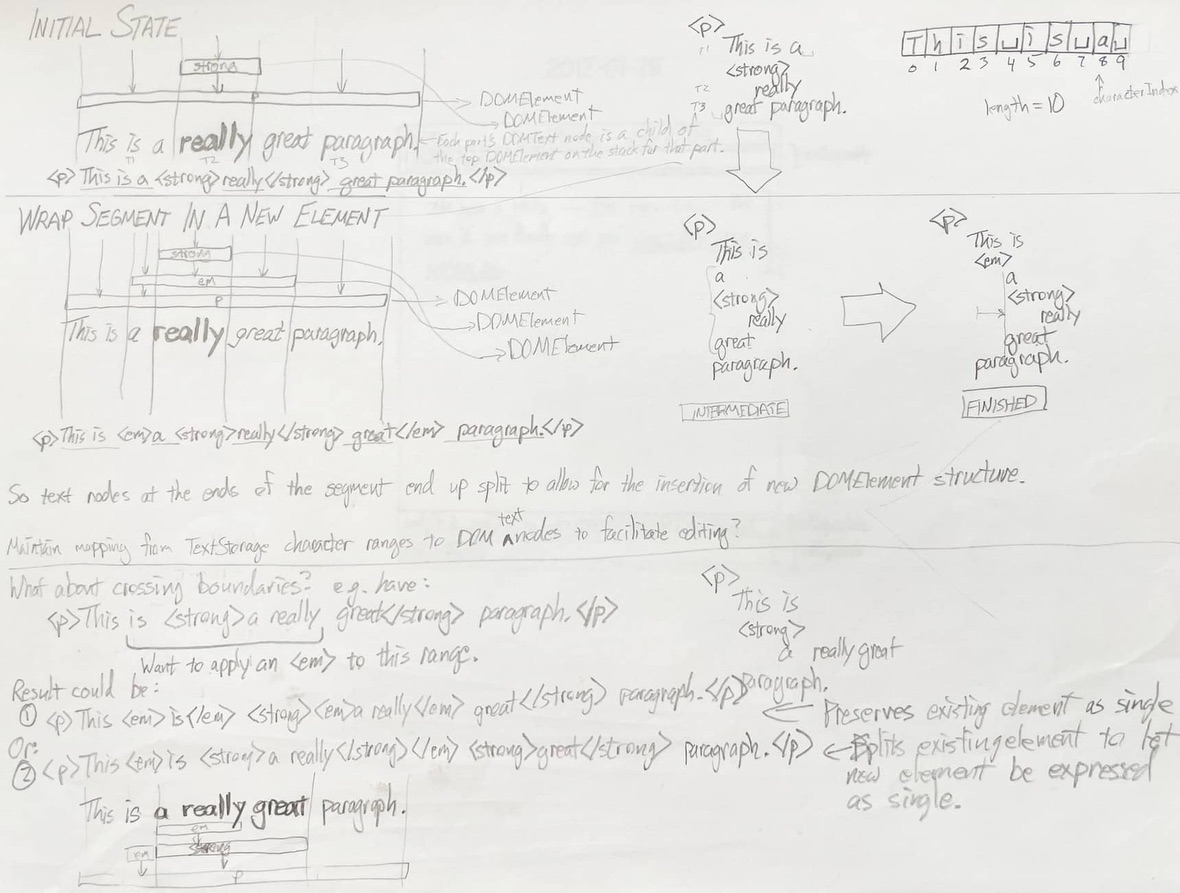 INITIAL STATE
strong
p
DOMElement
DOMElement
This is a really great paragraph.
T1 T2 T3
Each part's DOMText node is a child of
the top DOMElement on the stack for that part.
<p>This is a <strong>really</strong> great paragraph.</p>
<p>
T1 This is a
<strong>
T2 really
T3 great paragraph.
T h i s ␣ i s ␣ a ␣
0 1 2 3 4 5 6 7 8 9
length = 10
characterIndex
WRAP SEGMENT IN A NEW ELEMENT
strong
em
p
DOMElement
DOMElement
DOMElement
This is a really great paragraph.
<p>This is <em>a <strong>really</strong> great</em> paragraph.</p>
<p>
This is
a
<strong>
really
great
paragraph.
INTERMEDIATE
<p>
This is
<em>
a
<strong>
really
great
paragraph.
FINISHED
So text nodes at the ends of the segment end up split to allow for the insertion of new DOMElement structure.
Maintain mapping from TextStorage character ranges to DOM text nodes to facilitate editing?
What about crossing boundaries? e.g. have:
<p>This is <strong>a really great</strong> paragraph.</p>
Want to apply an <em> to this range.
<p>
This is
<strong>
a really great
paragraph.
Result could be:
① <p>This <em>is</em> <strong><em>a really</em> great</strong> paragraph.</p>
Preserves existing element as single
Or:
② <p>This <em>is <strong>a really</strong></em> <strong>great</strong> paragraph.</p>
Splits existing element to let
new element be expressed
as single.
This is a really great paragraph.
em
strong
em
p